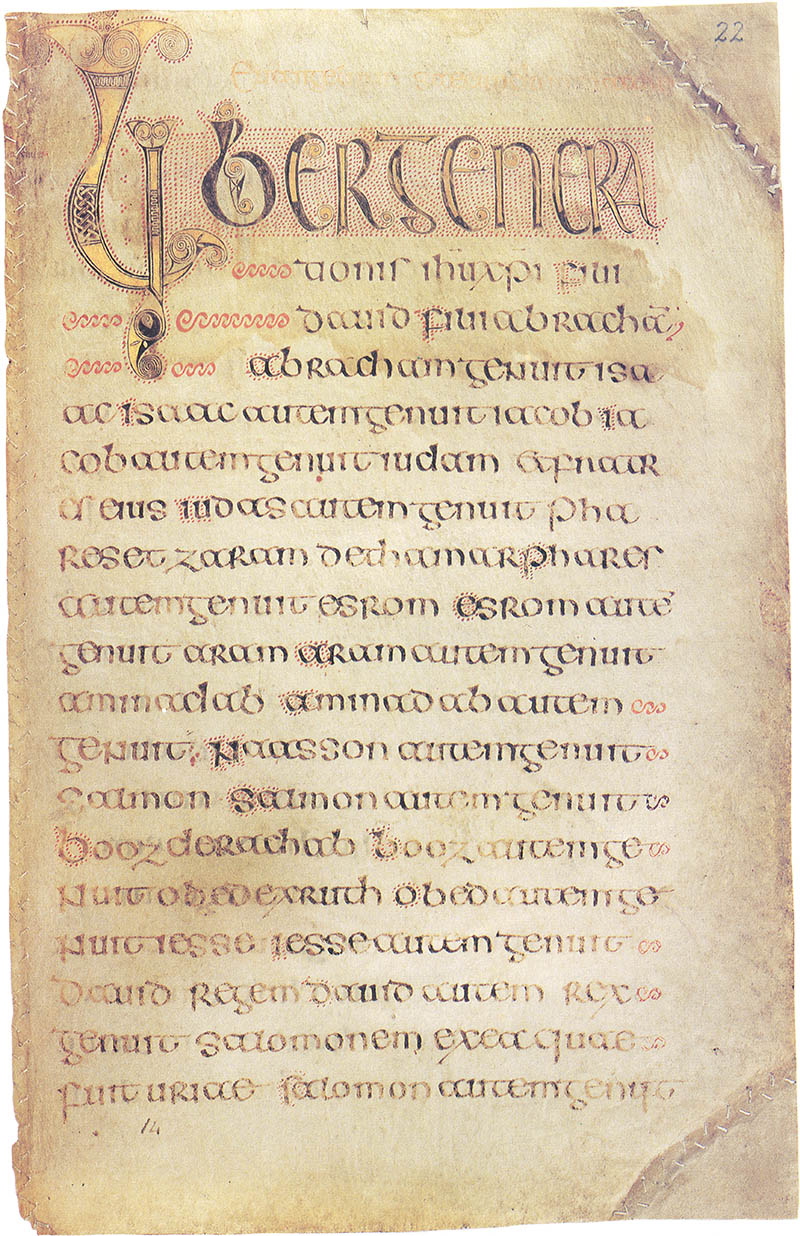 22
Liber genera
tionis ihu xpi filii
dauid filii abrachā
abracham genuit isa
ac isaac autem genuit iacob ia
cob autem genuit iudam & fratr
es eius iudas autem genuit pha
res et zaram de thamar phares
autem genuit esrom esrom autē
genuit aram aram autem genuit
aminadab aminadab autem
genuit naasson autem genuit
salmon salmon autem genuit
booz de rachab booz autem ge
nuit obed ex ruth obed autem ge
nuit iesse iesse autem genuit
dauid regem dauid autem rex
genuit salomonem ex ea quae
fuit uriae salomon autem genuit
14